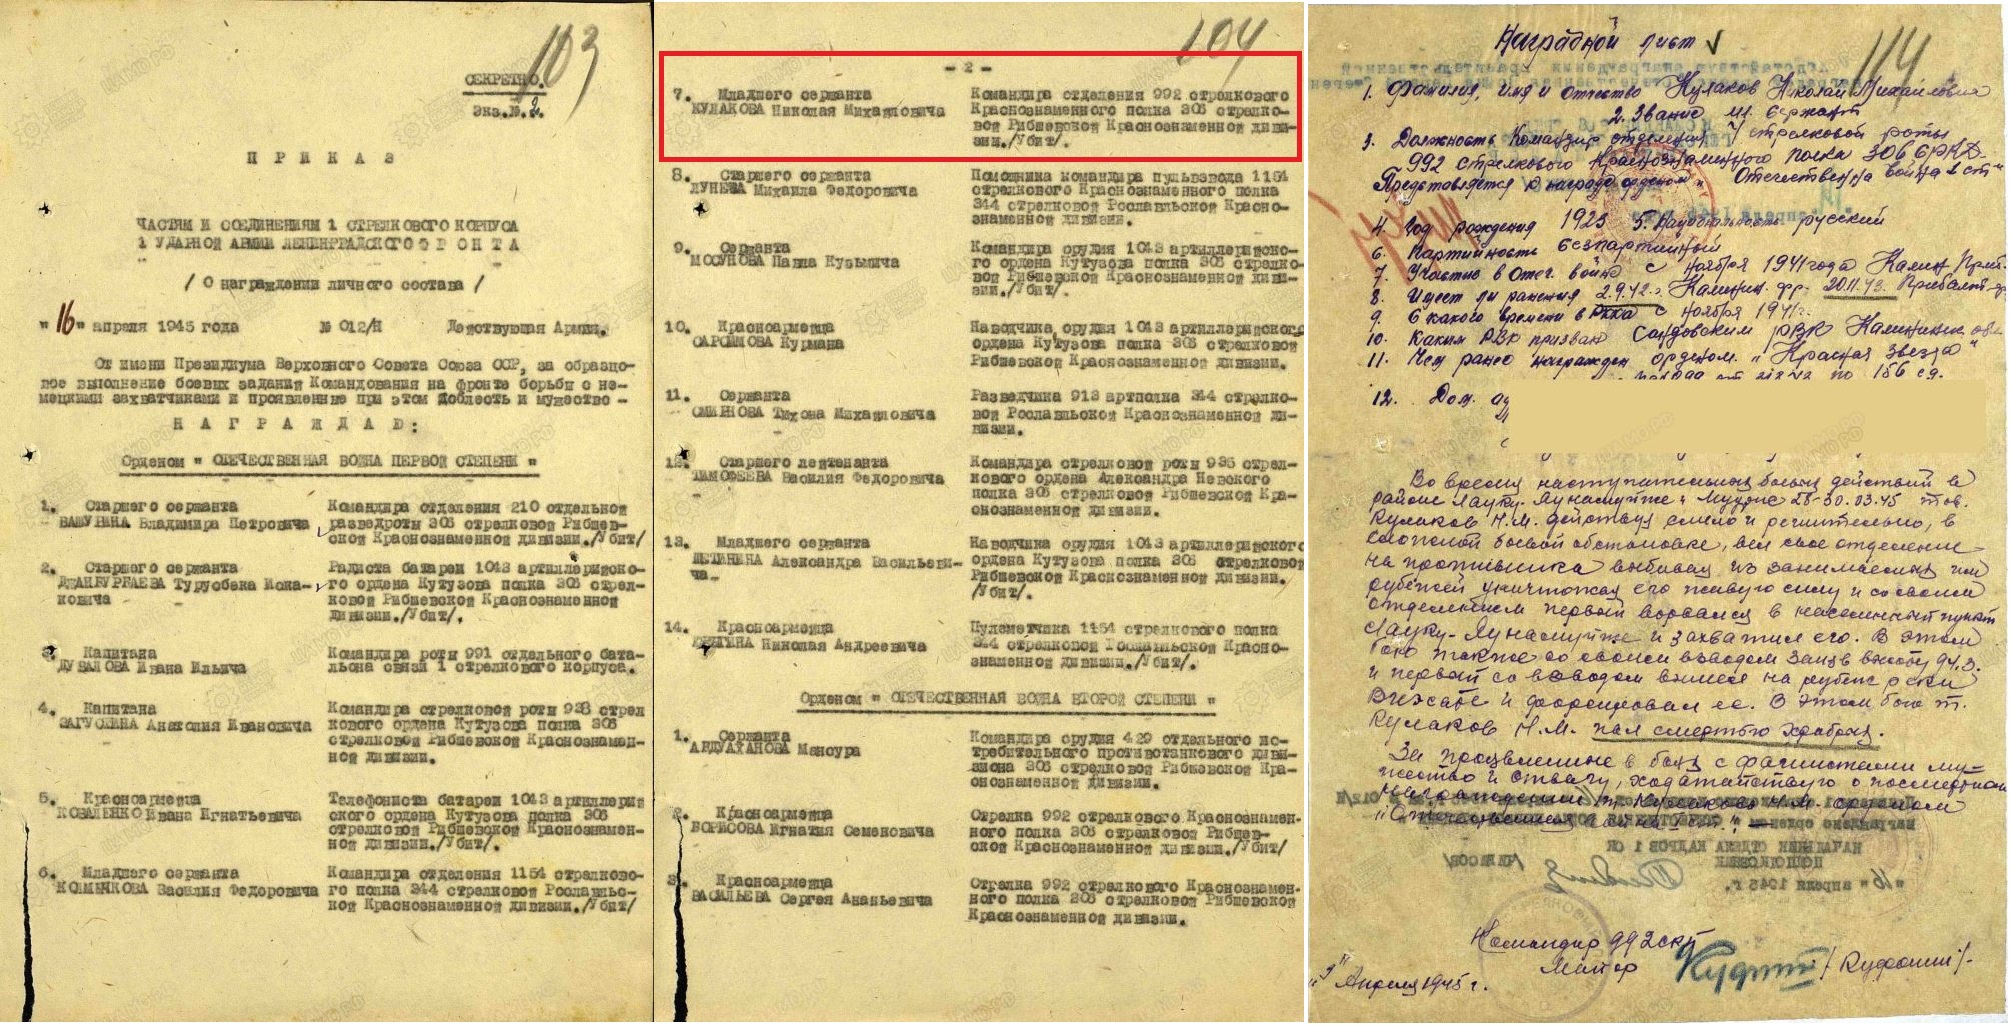 103
СЕКРЕТНО.
Экз.№.2.
П Р И К А З
ЧАСТЯМ И СОЕДИНЕНИЯМ 1 СТРЕЛКОВОГО КОРПУСА
1 УДАРНОЙ АРМИИ ЛЕНИНГРАДСКОГО Ф Р О Н Т А
/ О награждении личного состава /
"16" апреля 1945 года № 012/Н Действующая Армия.
От имени Президиума Верховного Совета Союза ССР, за образцо-
вое выполнение боевых заданий Командования на фронте борьбы с не-
мецкими захватчиками и проявленные при этом доблесть и мужество -
Н А Г Р А Ж Д А Ю :
Орденом " ОТЕЧЕСТВЕННАЯ ВОЙНА ПЕРВОЙ СТЕПЕНИ "
1. Старшего сержанта
ВАШУРИНА Владимира Петровича
Командира отделения 210 отдельной
разведроты 306 стрелковой Рибшев-
ской Краснознаменной дивизии./Убит/
2. Старшего сержанта
Турусбека Иска-
ковича
Радиста батареи 1043 артиллерийско-
го ордена Кутузова полка 306 стрел-
ковой Рибшевской Краснознаменной
дивизии./Убит/.
3. Капитана
ДУВАЛОВА Ивана Ильича
Командира роты 991 отдельного бата-
льона связи 1 стрелкового корпуса.
4. Капитана
Анатолия Ивановича
Командира стрелковой роты 938 стрел
кового ордена Кутузова полка 306
стрелковой Рибшевской Краснознамен-
ной дивизии.
5. Красноармейца
КОВАЛЕНКО Ивана Игнатьевича
Телефониста батареи 1043 артиллерий
ского ордена Кутузова полка 306
стрелковой Рибшевской Краснознамен-
ной дивизии./Убит/.
6. Младшего сержанта
КОМЕНКОВА Василия Федоровича
Командира отделения 1154 стрелково-
го полка 344 стрелковой Рославльс-
кой Краснознаменной дивизии./Убит/
104
- 2 -
7. Младшего сержанта
КУЛАКОВА Николая Михайловича
Командира отделения 992 стрелкового
Краснознаменного полка 306 стрелко-
вой Рибшевской Краснознаменной диви-
зии./Убит/.
8. Старшего сержанта
ЛУНЕВА Михаила Федоровича
Помощника командира пульвзвода 1154
стрелкового Краснознаменного полка
344 стрелковой Рославльской Красно-
знаменной дивизии.
9. Сержанта
МОСУНОВА Павла Кузьмича
Командира орудия 1043 артиллерийско-
го ордена Кутузова полка 306 стрелко-
вой Рибшевской Краснознаменной диви-
зии./Убит/.
10. Красноармейца
Курмана
Наводчика орудия 1043 артиллерийского
ордена Кутузова полка 306 стрелковой
Рибшевской Краснознаменной дивизии.
11. Сержанта
СМИРНОВА Тихона Михайловича
Разведчика 913 артполка 344 стрелко-
вой Рославльской Краснознаменной ди-
визии.
12. Старшего лейтенанта
ТИМОФЕЕВА Василия Федоровича
Командира стрелковой роты 935 стрел-
кового ордена Александра Невского
полка 306 стрелковой Рибшевской Кра-
снознаменной дивизии.
13. Младшего сержанта
Александра Васильеви-
ча.
Наводчика орудия 1043 артиллерийского
ордена Кутузова полка 306 стрелковой
Рибшевской Краснознаменной дивизии.
/Убит/.
14. Красноармейца
Николая Андреевича
Пулеметчика 1154 стрелкового полка
344 стрелковой Рославльской Красно-
знаменной дивизии./Убит/.
Орденом " ОТЕЧЕСТВЕННАЯ ВОЙНА ВТОРОЙ СТЕПЕНИ "
1. Сержанта
Мансура
Командира орудия 429 отдельного ис-
требительного противотанкового диви-
зиона 306 стрелковой Рибшевской Кра-
снознаменной дивизии.
2. Красноармейца
БОРИСОВА Игнатия Семеновича
Стрелка 992 стрелкового Краснознамен-
ного полка 306 стрелковой Рибшев-
ской Краснознаменной дивизии./Убит/
3. Красноармейца
ВАСИЛЬЕВА Сергея Ананьевича
Стрелка 992 стрелкового Краснознамен-
ного полка 306 стрелковой Рибшевской
Краснознаменной дивизии.
114
Наградной лист
1. Фамилия, имя и отчество Кулаков Николай Михайлович
2. Звание мл. сержант
3. Должность Командир отделения 7 стрелковой роты
992 стрелкового Краснознаменного полка 306 СРКД.
Представляется к награде орденом „Отечественная война 1 ст"
4. Год рождения 1923 5. Национальность русский
6. Партийность беспартийный
7. Участие в Отеч. войне с ноября 1941 года Калин. Приб.
8. Имеет ли ранения 2.9.42 г. Калинин. фр. 20.11.43. Прибалт. ф
9. С какого времени в РККА с ноября 1941 г.
10. Каким РВК призван Сандовским РВК Калининск. обл
11. Чем ранее награжден орденом „Красная Звезда"
по 156 сд.
12. Дом. ад
Во время наступательных боевых действий в
районе Лауку-Лунасмуйже и Муцурне 28-30.03.45 тов.
Кулаков Н.М. действуя смело и решительно, в
сложной боевой обстановке, вел свое отделение
на противника выбивая из занимаемых им
рубежей уничтожая его живую силу и со своим
отделением первый ворвался в населенный пункт
Лауку-Лунасмуйже и захватил его. В этом
бою также со своим взводом занял высоту 94,3.
и первый со взводом вышел на рубеж реки
и форсировал ее. В этом бою т.
Кулаков Н.М. пал смертью храбрых.
За проявленные в боях с фашистами му-
жество и отвагу, ходатайствую о посмертном
награждении т. Кулакова Н.М. орденом
„Отечественная война ст."
НАЧАЛЬНИК ОТДЕЛА КАДРОВ 1 СК
ПОДПОЛКОВНИК
"16" апреля 1945 г.
Командир 992 скп
Майор
"9" Апреля 1945 г.